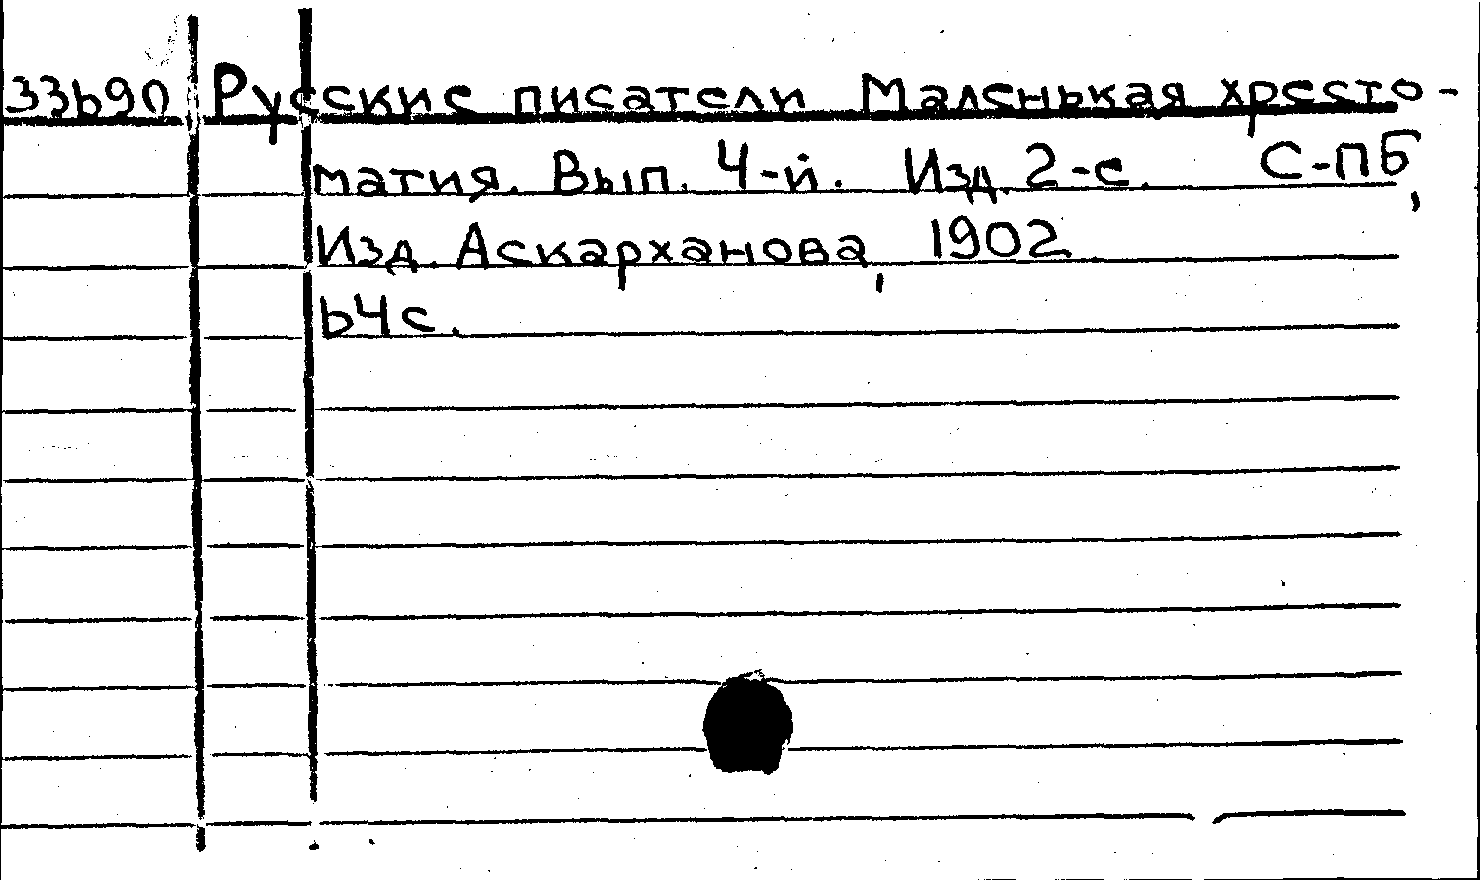 33690 Русские писатели Маленькая хресто-
матия. Вып. 4-й. Изд. 2-е. С-ПБ,
Изд. Аскарханова, 1902
64с.